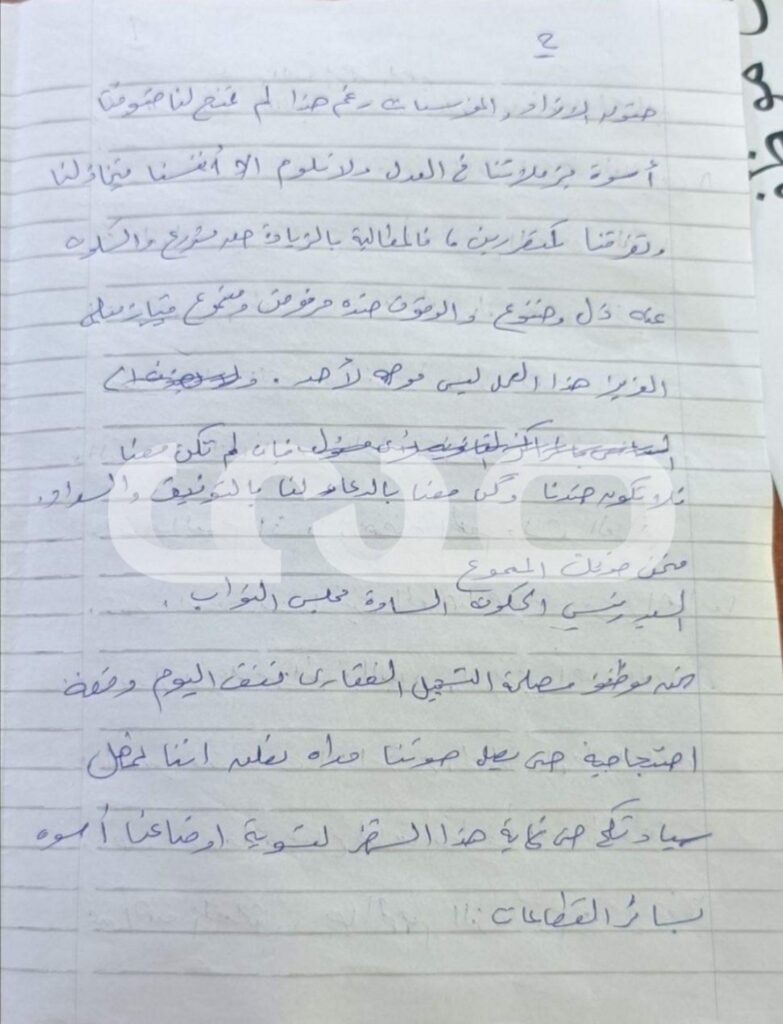 2
حقوق الافراد والمؤسسات رغم هذا لم تمنح لنا حقوقنا
أسوة بزملائنا في العدل ولا نلوم الا أنفسنا فتخاذلنا
وتفرقنا فالمطالبة بالزيادة حق مشروع والسكوت
عنه ذل وخنوع والوقوف ضده مرفوض وممنوع
العزيز هذا العمل ليس موجه لأحد .
فإن لم تكن معنا
فلا تكون ضدنا وكن معنا بالدعاء لنا بالتوفيق والسداد.
صوتك المسموع
السيد رئيس الحكومة السادة مجلس النواب .
نحن موظفو مصلحة التسجيل العقاري نقف اليوم وقفة
احتجاجية حتى يصل صوتنا نعلن اننا نمهل
سيادتكم حتى نهاية هذا الشهر لتسوية اوضاعنا أسوه
بسائر القطاعات
صدى
مو